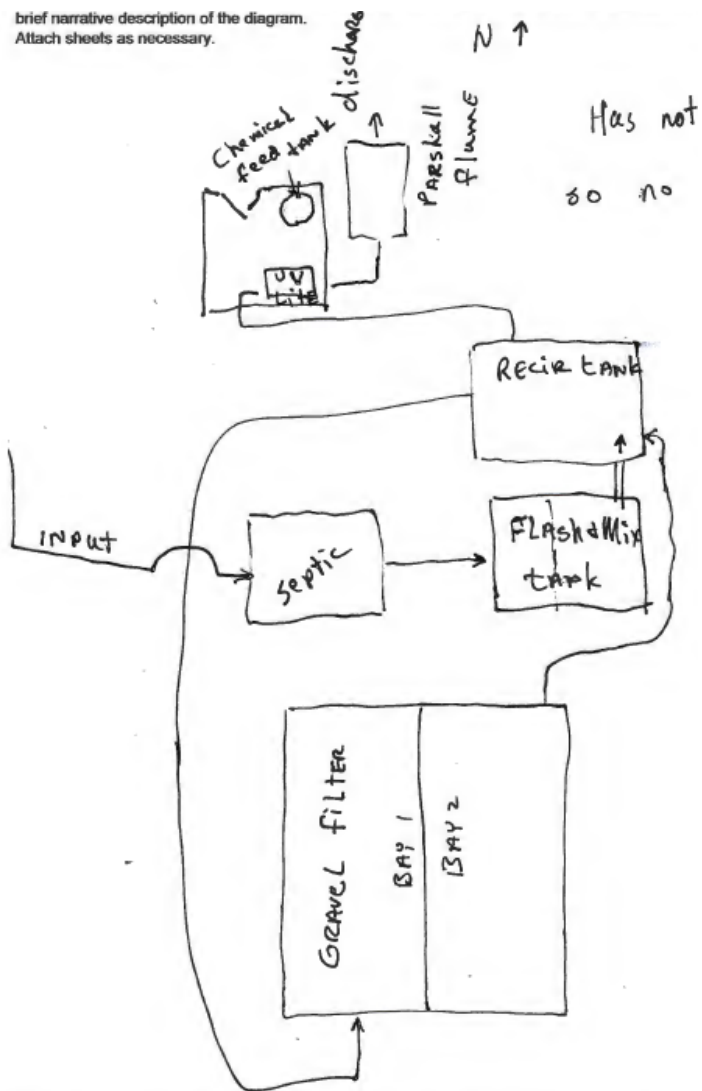 brief narrative description of the diagram.
Attach sheets as necessary.
N
Has not
so no
discharge
Chemical
feed tank
PARShall
flume
UV
Lite
RECIR tANK
INPUT
septic
FLAsh & Mix
tank
GRAVEL FILTER
BAY 1
BAY 2